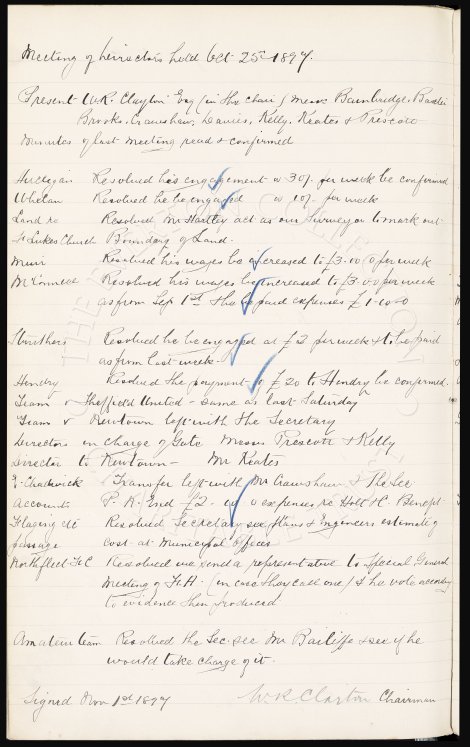 Meeting of Directors held Oct 25th 1897.
Present W.R. Clayton Esq (in the chair) Messrs Bainbridge, Baxter
Brooks, Crawshaw, Davies, Kelly, Keates & Prescott
Minutes of last meeting read & confirmed
Huligan Resolved his engagement @ 30/- per week be confirmed
Whelan Resolved he be engaged @ 10/- per week
Land re Resolved Mr Hartley act as our Surveyor to mark out
St Lukes Church Boundary of Land.
Muir Resolved his wages be increased to £3.00.0 per week
McConnell Resolved his wages be increased to £3.00 per week
as from Sep 1st & he be paid expenses £1-10-0
Struthers Resolved he be engaged at £2 per week & to be paid
as from last week.
Hendry Resolved the payment of £20 to Hendry be confirmed.
Team v Sheffield United - same as last Saturday
Team v Newtown left with the Secretary
Directors in charge of Gate Messrs Prescott & Kelly
Director to Newtown - Mr Keates
E. Chadwick Transfer left with Mr Crawshaw & The Sec
Accounts P. R. End £2. expenses re Holt & C. Benefit
Flagging etc Resolved Secretary see plans & Engineers estimate of
passage cost at Municipal Offices
Northfleet F.C Resolved we send a representative to Special General
Meeting of F.L.A. (in case they call one) & he vote according
to evidence then produced
Amateur team Resolved the Sec see Mr Bailiffe & see if he
would take charge of it.
Signed Nov 1st 1897 W.R. Clayton Chairman